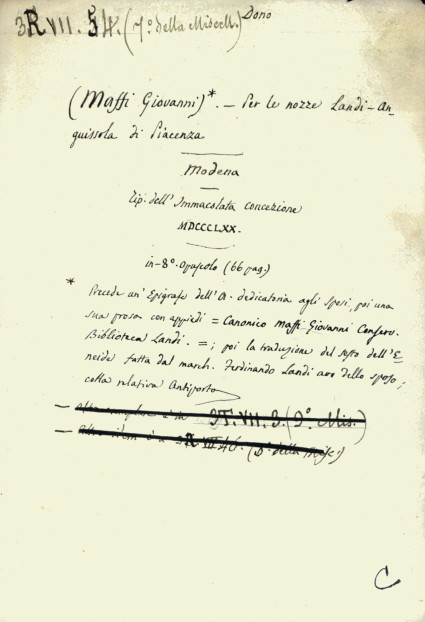 3R VII. 54. (7º. della Miscell.) Dono
(Maffi Giovanni)*. — Per le nozze Landi-An-
guissola di Piacenza
Modena
Tip. dell' Immacolata Concezione
MDCCCLXX.
in-8º. Opuscolo (66 pag.)
* Precede un' Epigrafe dell' A. dedicatoria agli sposi, poi una
sua prosa con appiedi = Canonico Maffi Giovanni Conserv.
Biblioteca Landi. =; poi la traduzione del sesto dell' E-
neide fatta dal march. Ferdinando Landi avo dello sposo,
colla relativa Antiporto
— altro esemplare è in 3T. VII. 3. (9º. Mis.)
— altro idem è a 3R VII 46. (Dº. della Misc.)
C